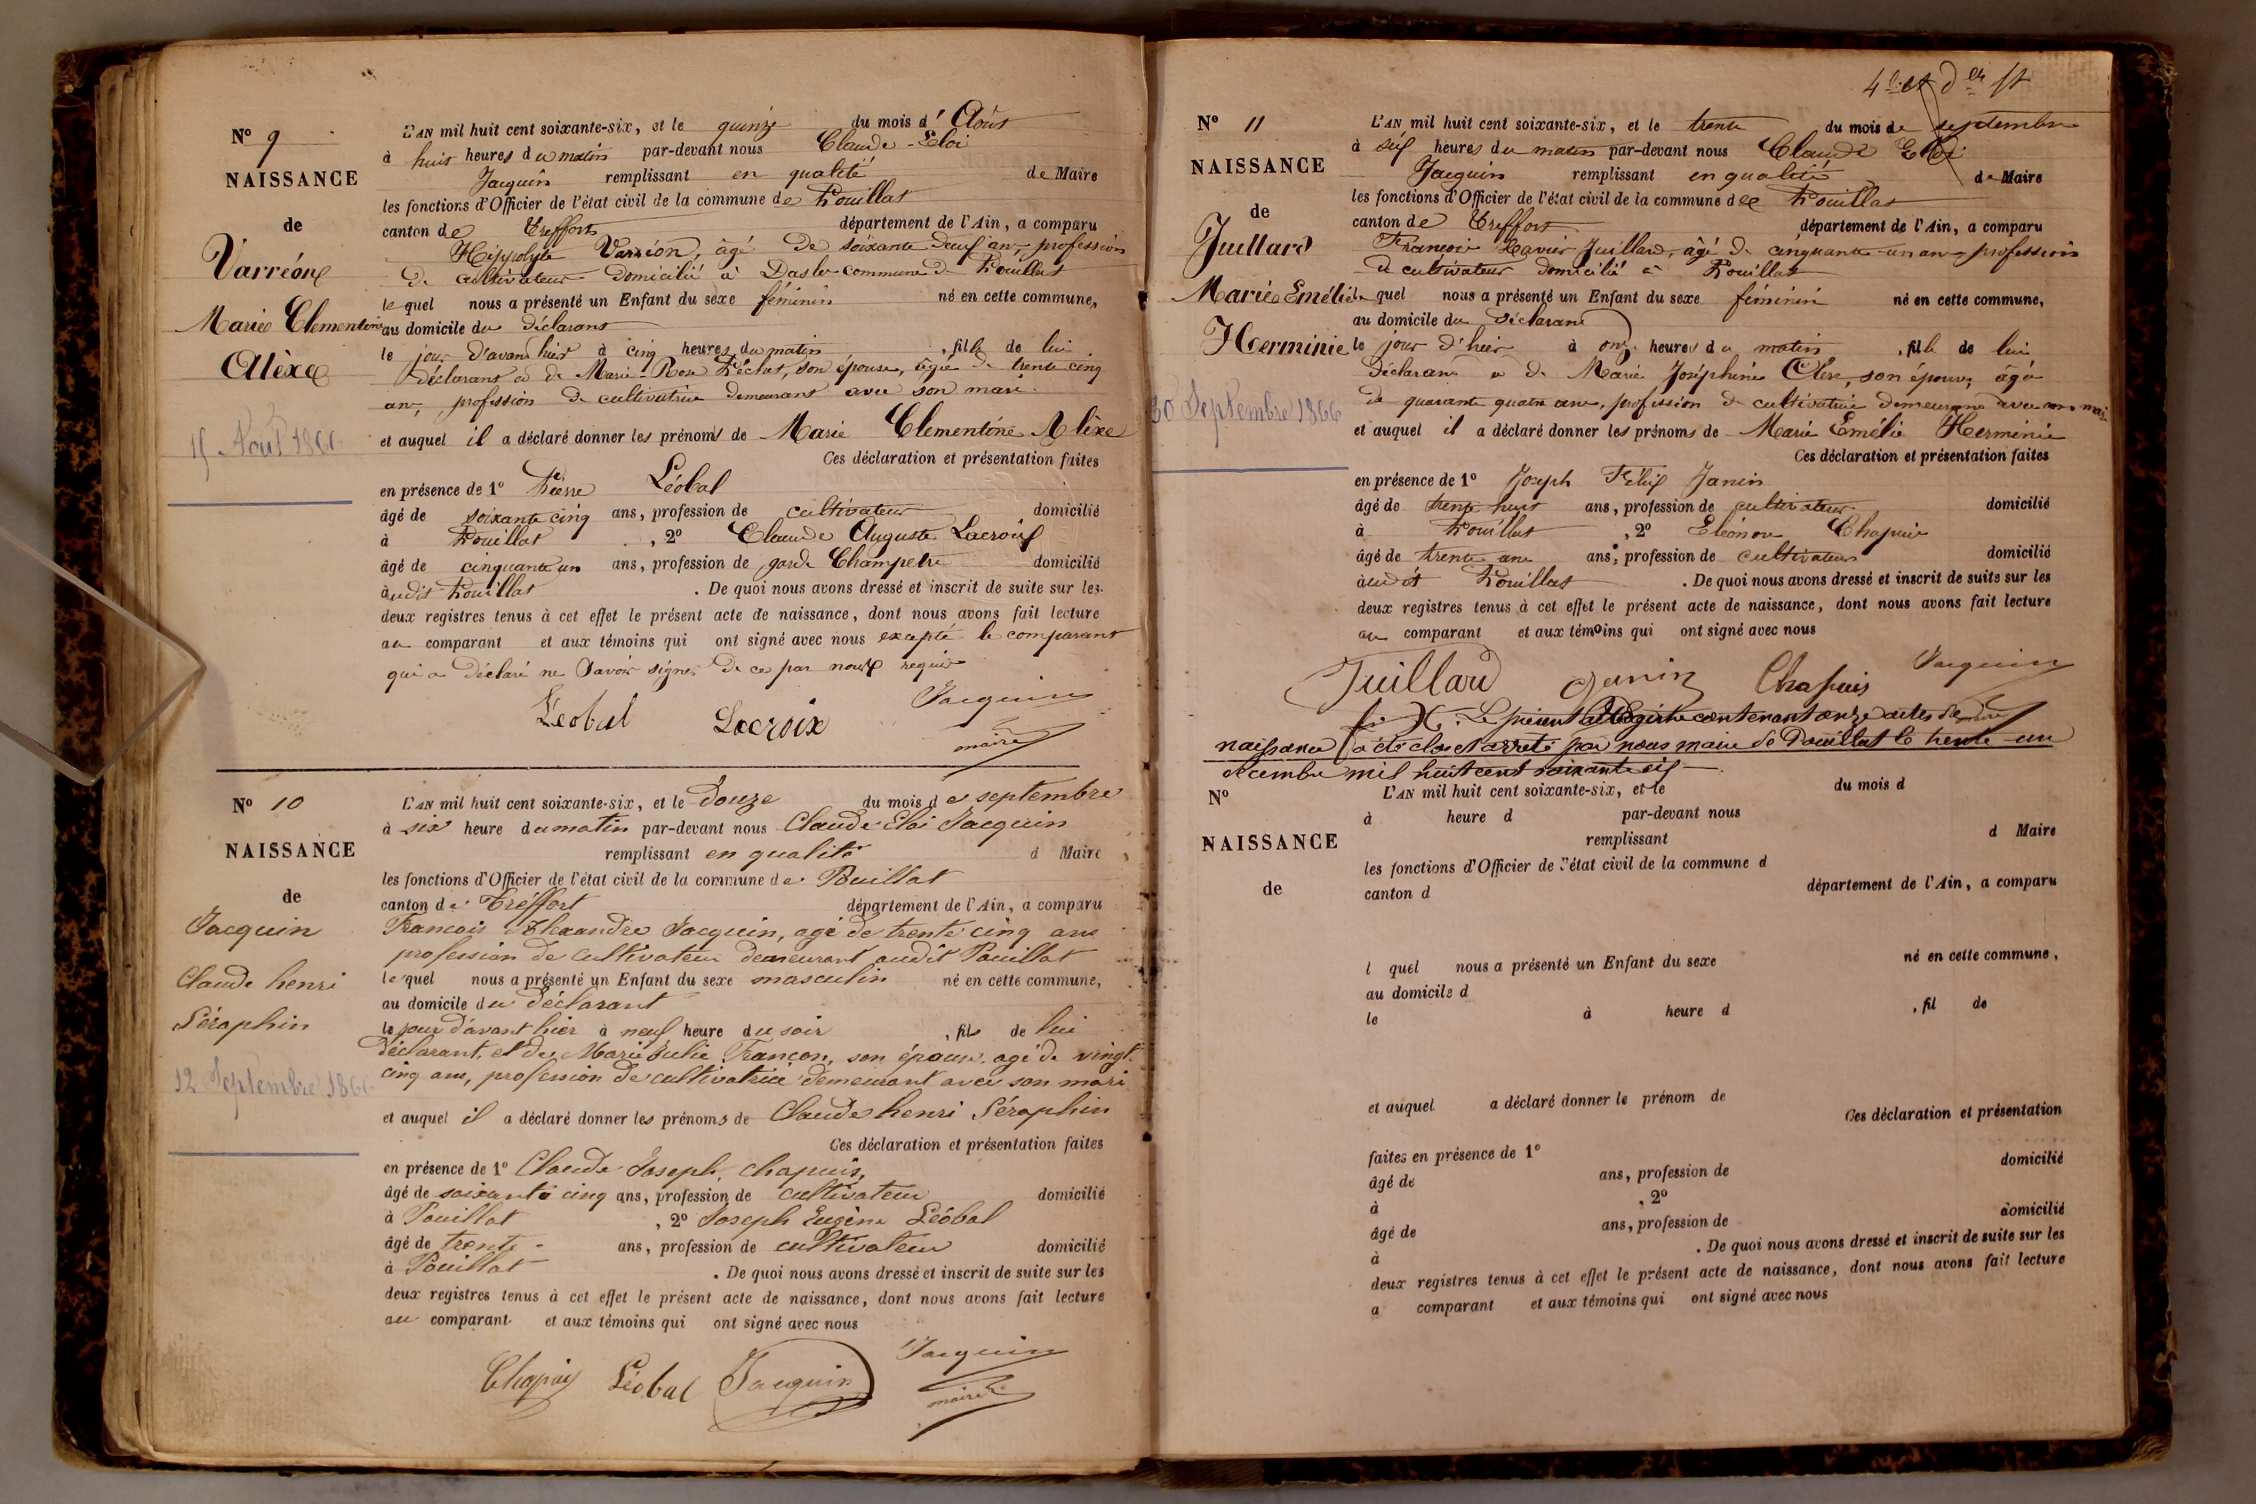 N° 9
NAISSANCE
de
Varréon
Marie Clementine
Alèxe
15 Aout 1866
L'AN mil huit cent soixante-six, et le quinze du mois d'Août
à huit heures du matin par-devant nous Claude-Eloi
Jacquin remplissant en qualité de Maire
les fonctions d'Officier de l'état civil de la commune de Pouillat
canton de Treffort département de l'Ain, a comparu
Hippolyte Varréon, âgé de soixante deux ans profession
de cultivateur domicilié à commune de Pouillat
lequel nous a présenté un Enfant du sexe féminin né en cette commune,
au domicile du déclarant
le jour d'avant hier à cinq heures du matin, fille de lui
déclarant et de Marie-Rose son épouse, âgée de trente cinq
ans, profession de cultivatrice demeurant avec son mari
et auquel il a déclaré donner les prénoms de Marie Clementine Alèxe
Ces déclaration et présentation faites
en présence de 1° Pierre Léobal
âgé de soixante cinq ans, profession de cultivateur domicilié
à Pouillat, 2° Claude Auguste Lacroix
âgé de cinquante un ans, profession de garde Champetre domicilié
audit Pouillat. De quoi nous avons dressé et inscrit de suite sur les
deux registres tenus à cet effet le présent acte de naissance, dont nous avons fait lecture
au comparant et aux témoins qui ont signé avec nous excepté le comparant
qui a déclaré ne savoir signer de ce par nous requis
Léobal Lacroix Jacquin
maire
N° 10
NAISSANCE
de
Jacquin
Claude henri
Séraphin
12 Septembre 1866
L'AN mil huit cent soixante-six, et le Douze du mois de septembre
à six heure du matin par-devant nous Claude Eloi Jacquin
remplissant en qualité d Maire
les fonctions d'Officier de l'état civil de la commune de Pouillat
canton de Tréffort département de l'Ain, a comparu
Francois Alexandre Jacquin, agé de trente cinq ans
profession de cultivateur demeurant audit Pouillat
lequel nous a présenté un Enfant du sexe masculin né en cette commune,
au domicile du déclarant
le jour d'avant hier à neuf heure du soir, fils de lui
déclarant, et de Marie Julie Françon, son épouse, agé de vingt
cinq ans, profession de cultivatrice demeurant avec son mari
et auquel il a déclaré donner les prénoms de Claude henri Séraphin
Ces déclaration et présentation faites
en présence de 1° Claude Joseph Chapuis,
âgé de soixante cinq ans, profession de cultivateur domicilié
à Pouillat, 2° Joseph Eugène Léobal
âgé de trente ans, profession de cultivateur domicilié
à Pouillat. De quoi nous avons dressé et inscrit de suite sur les
deux registres tenus à cet effet le présent acte de naissance, dont nous avons fait lecture
au comparant et aux témoins qui ont signé avec nous
Chapuis Léobal Jacquin Jacquin
maire
N° 11
NAISSANCE
de
Juillard
Marie Emélie
Herminie
30 Septembre 1866
L'AN mil huit cent soixante-six, et le trente du mois de septembre
à six heures du matin par-devant nous Claude Eloi
Jacquin remplissant en qualité de Maire
les fonctions d'Officier de l'état civil de la commune de Pouillat
canton de Treffort département de l'Ain, a comparu
Francois Xavier Juillard, âgé de cinquante un ans profession
de cultivateur domicilié à Pouillat
lequel nous a présenté un Enfant du sexe féminin né en cette commune,
au domicile du déclarant
le jour d'hier à onze heures du matin, fille de lui
déclarant et de Marie Joséphine Clere, son épouse, âgé
de quarante quatre ans, profession de cultivatrice demeurant avec son mari
et auquel il a déclaré donner les prénoms de Marie Emélie Herminie
Ces déclaration et présentation faites
en présence de 1° Joseph Félix Janin
âgé de trente huit ans, profession de cultivateur domicilié
à Pouillat, 2° Eléonore Chapuis
âgé de trente ans ans, profession de cultivateur domicilié
audit Pouillat. De quoi nous avons dressé et inscrit de suite sur les
deux registres tenus à cet effet le présent acte de naissance, dont nous avons fait lecture
au comparant et aux témoins qui ont signé avec nous
Juillard Janin Chapuis Jacquin
Le présent Régistre contenant onze actes de
naissance a été clos et arreté par nous maire de Pouillat le trente un
décembre mil huit cent soixante six
N°
NAISSANCE
de
L'AN mil huit cent soixante-six, et le du mois d
à heure d par-devant nous
remplissant d Maire
les fonctions d'Officier de l'état civil de la commune d
canton d département de l'Ain, a comparu
l quel nous a présenté un Enfant du sexe né en cette commune,
au domicile d
le à heure d , fil de
et auquel a déclaré donner le prénom de
Ces déclaration et présentation
faites en présence de 1°
âgé de ans, profession de domicilié
à , 2°
âgé de ans, profession de domicilié
à . De quoi nous avons dressé et inscrit de suite sur les
deux registres tenus à cet effet le présent acte de naissance, dont nous avons fait lecture
a comparant et aux témoins qui ont signé avec nous